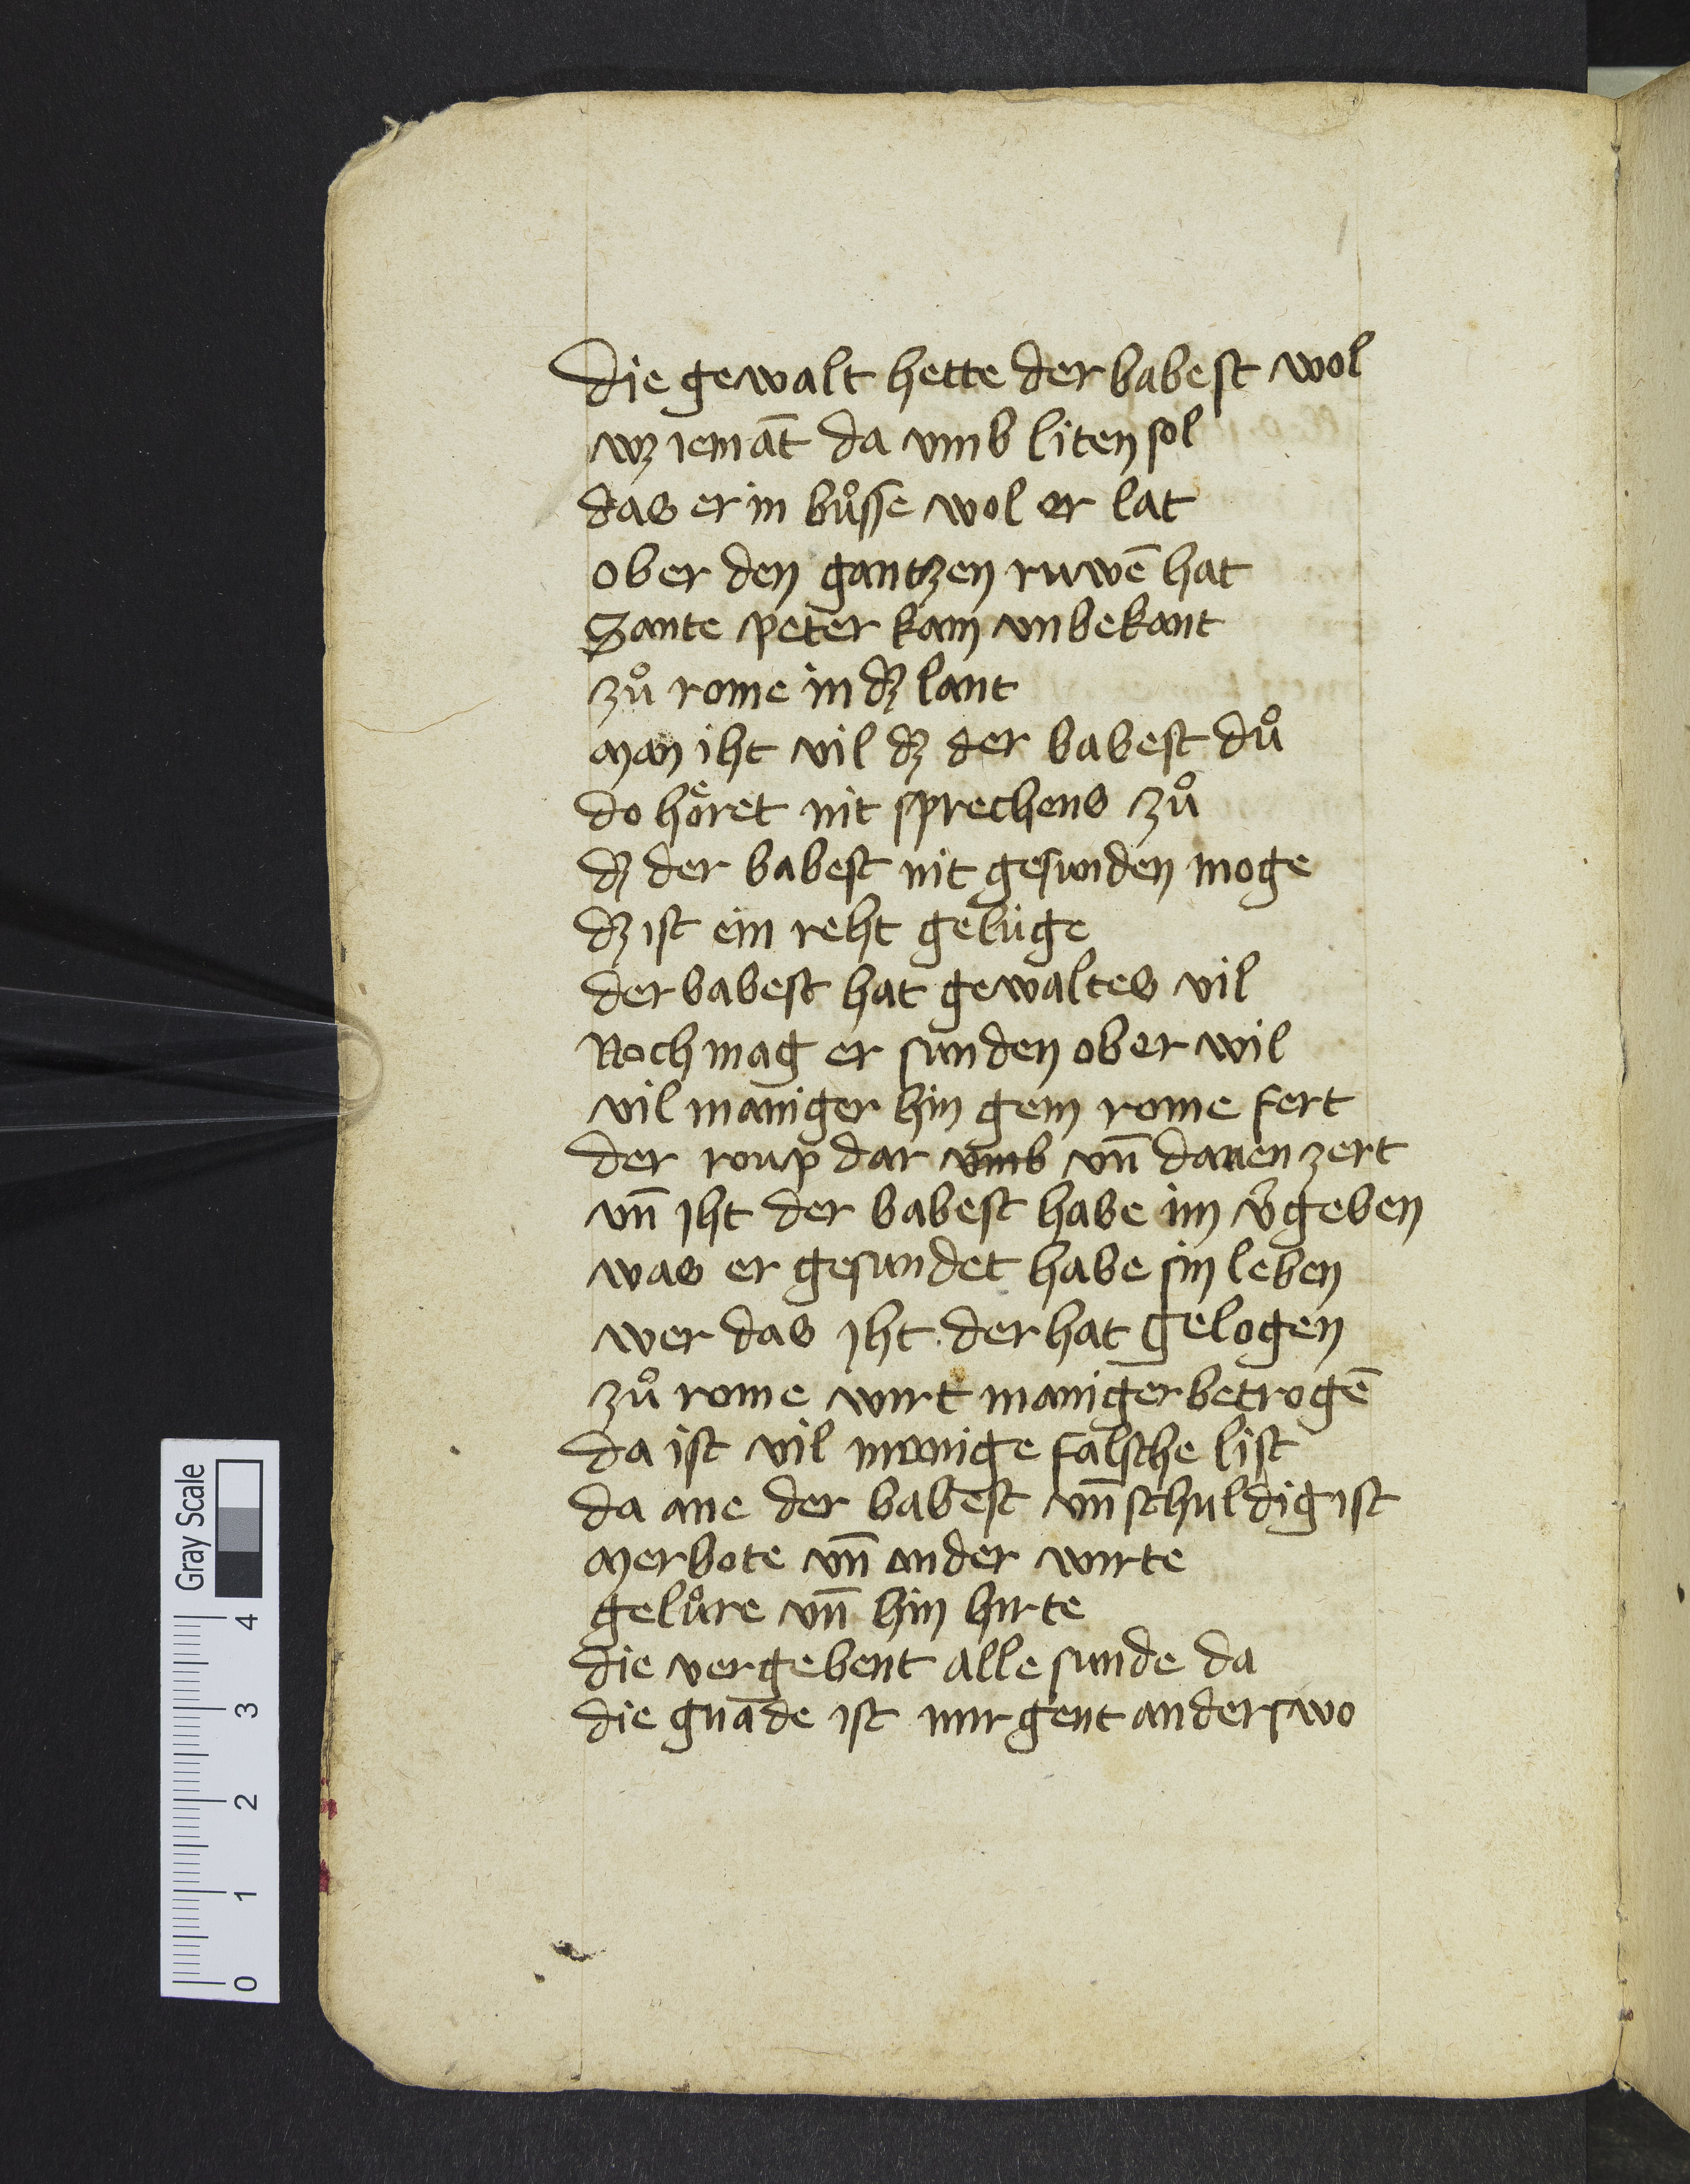 die gewalt hette der babest wol
wz iemāt da vmb liten sol
das er in bůsse wol er lat
ober den gantzen ruwē hat
Sante peter kam vnbekant
zů rome in dz lant
man iht vil dz der babest dů
do hoͤret nit sprechens zů
dz der babest nit gesunden moge
dz ist ein reht geluge
der babest hat gewaltes vil
Noch mag er sunden ober wil
vil maniger hin gein rome fert
der roup dar vmb vn̄ danen zert
vn̄ iht der babest habe im v̉geben
was er gesundet habe sin leben
wer das iht der hat gelogen
zů rome wirt maniger betrogē
da ist vil manige falsche list
da ane der babest vn̄schuldig ist
merbote vn̄ ander wirte
gelůre vn̄ hin hirte
die vergebent alle sunde da
die gnade ist nirgent anderswo
Gray Scale
0 1 2 3 4